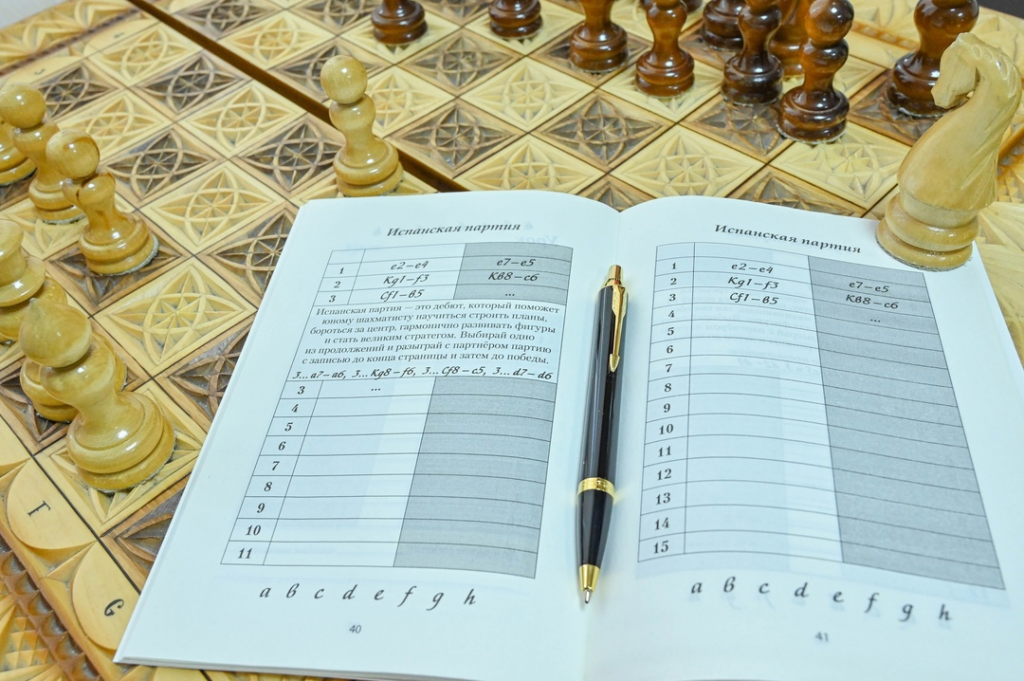 Испанская партия
1 e2–e4 e7–e5
2 Kg1–f3 Kв8–c6
3 Cf1–в5 ...
Испанская партия – это дебют, который поможет
юному шахматисту научиться строить планы,
бороться за центр, гармонично развивать фигуры
и стать великим стратегом. Выбирай одно
из продолжений и разыграй с партнёром партию
с записью до конца страницы и затем до победы.
3... a7–a6, 3... Kg8–f6, 3... Cf8–c5, 3... d7–d6
3 ...
4
5
6
7
8
9
10
11
a в c d e f g h
40
Испанская партия
1 e2–e4 e7–e5
2 Kg1–f3 Kв8–c6
3 Cf1–в5 ...
4
5
6
7
8
9
10
11
12
13
14
15
a в c d e f g h
41
Г
G